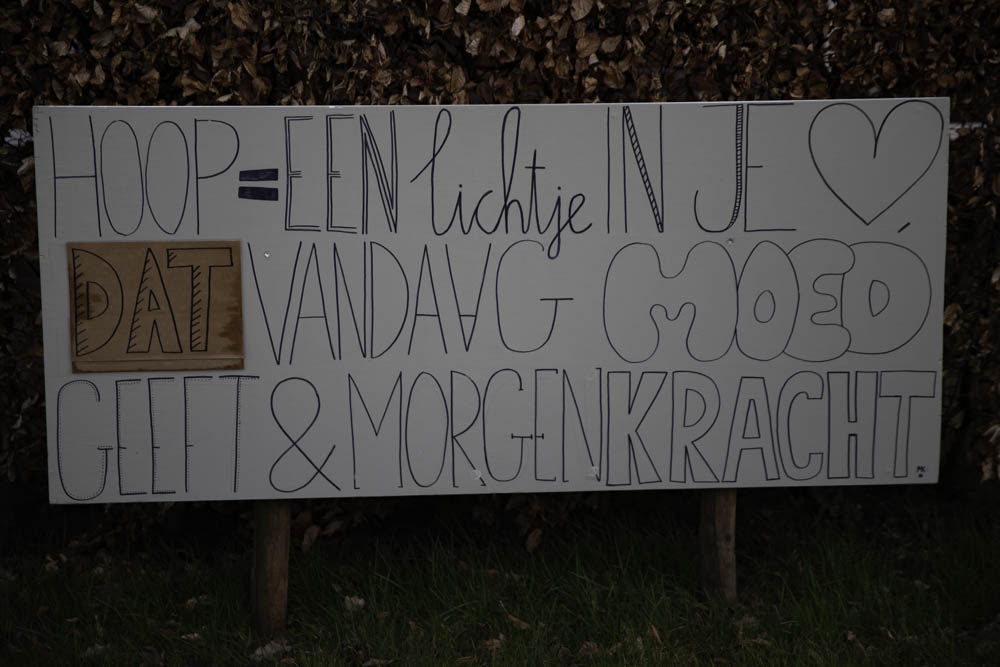 HOOP = EEN lichtje IN JE ♡,
DAT VANDAAG MOED
GEEFT & MORGEN KRACHT
MK.